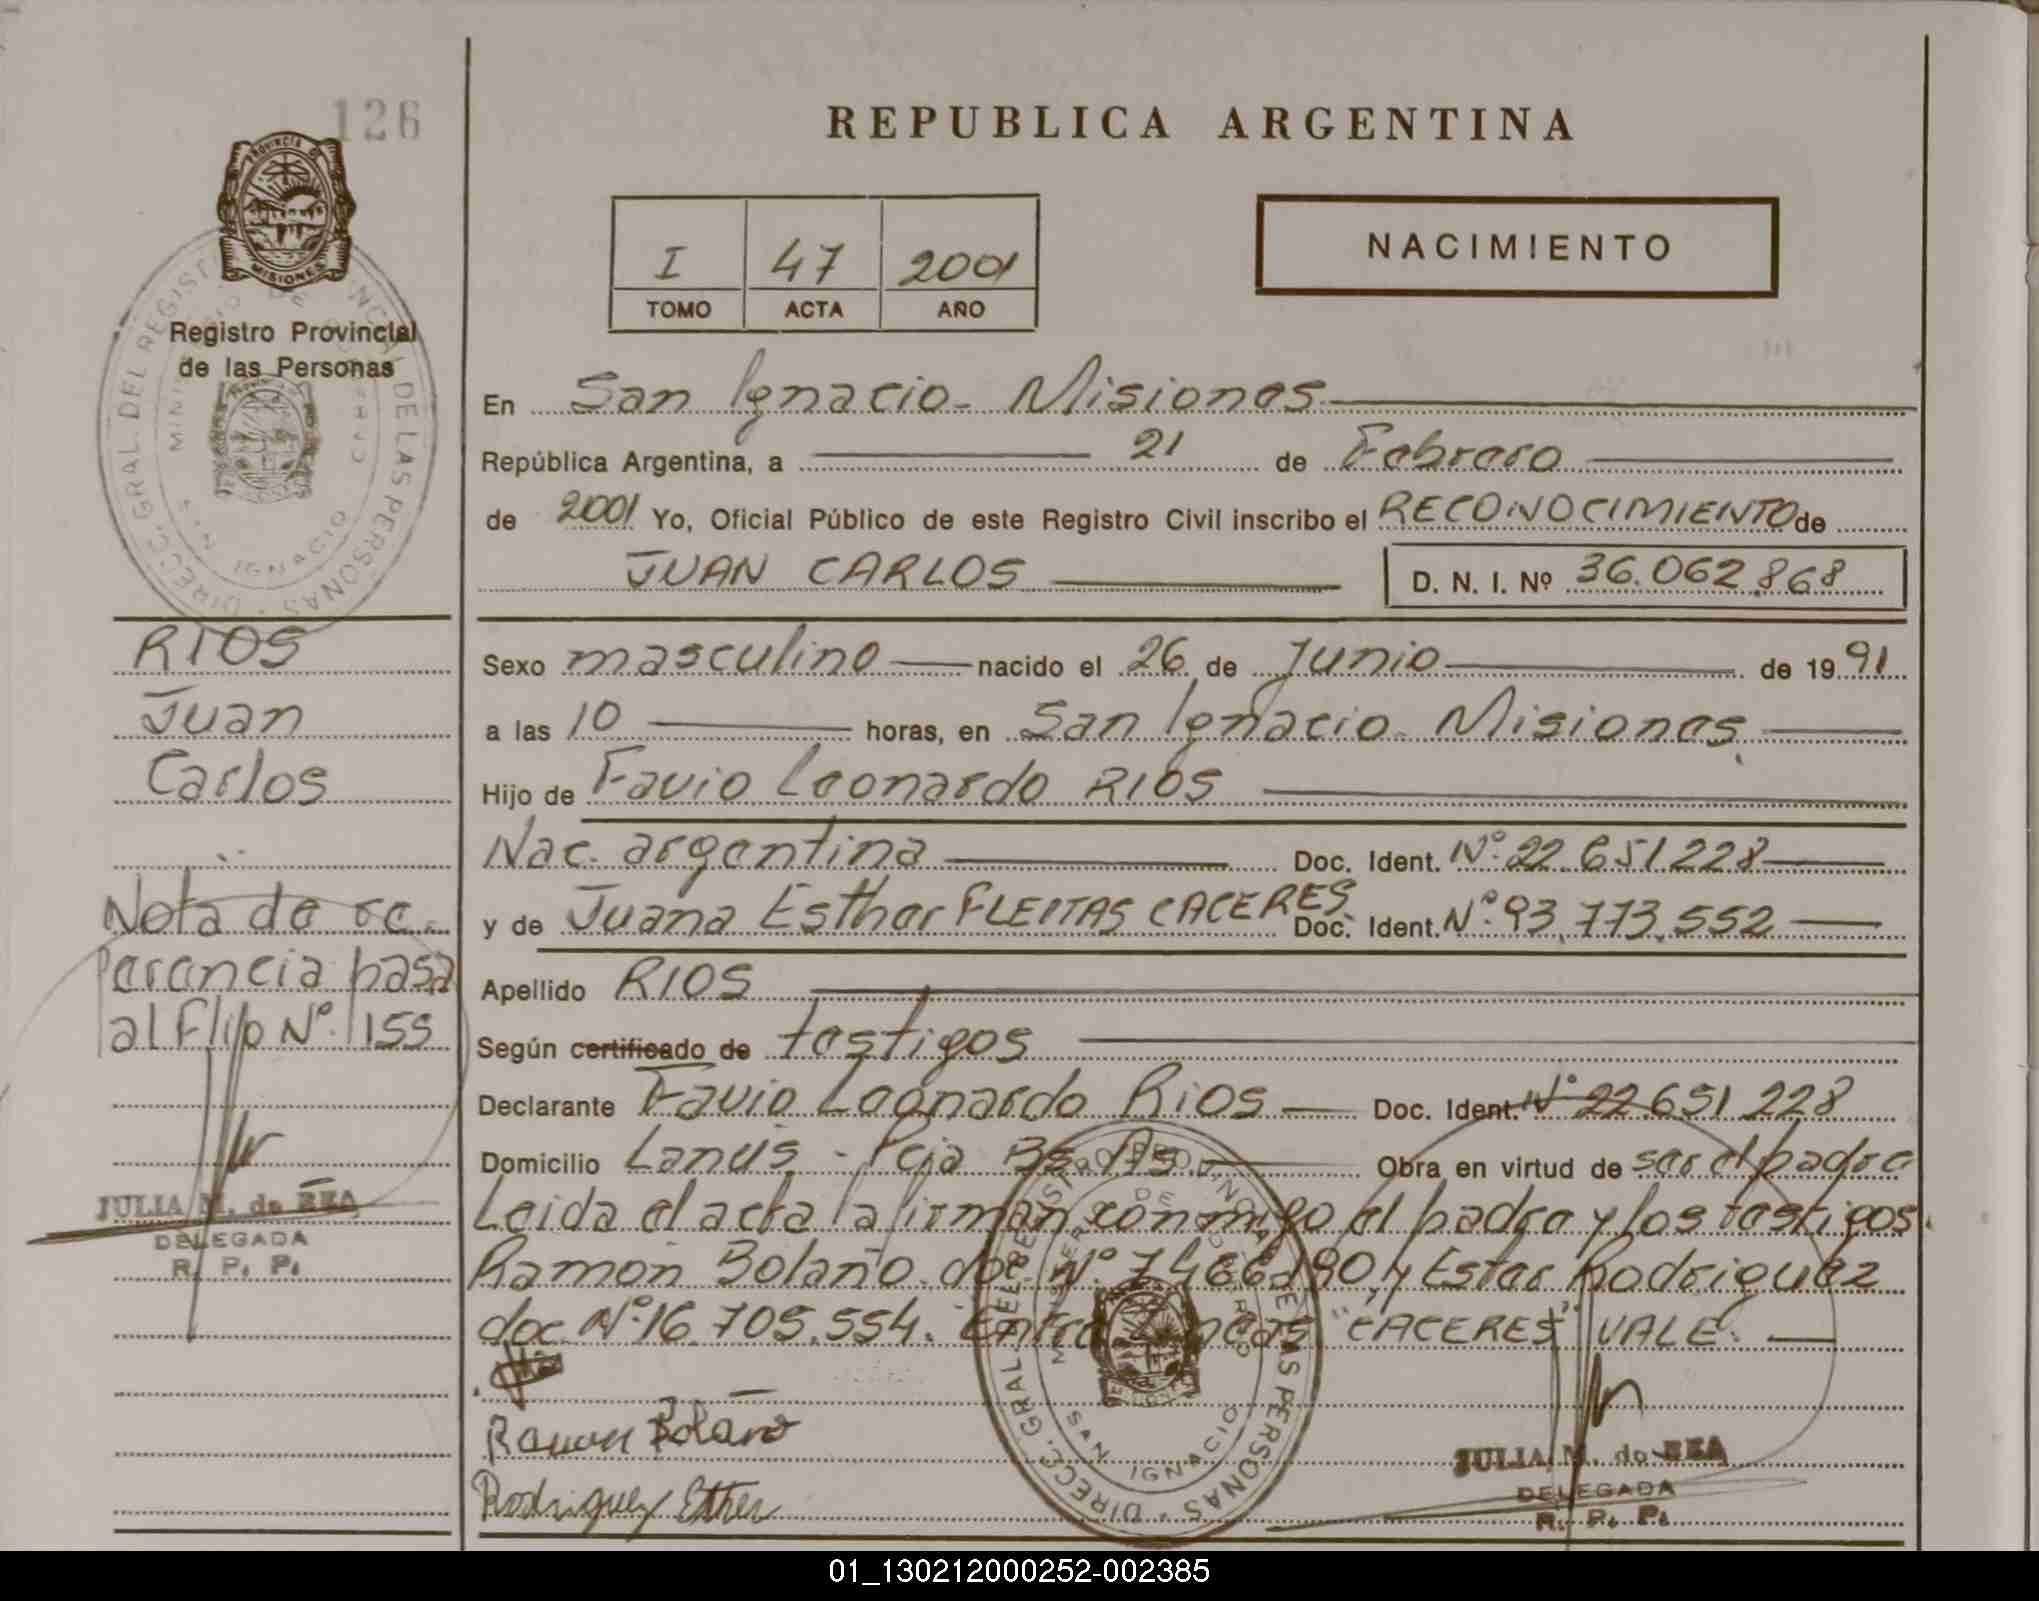 126
REPUBLICA ARGENTINA
PROVINCIA D
MISIONES
Registro Provincial
de las Personas
DIRECC. GRAL. DEL REGIST NCIAL DE LAS PERSONAS
SAN IGNACIO
I 47 2001
TOMO ACTA AÑO
NACIMIENTO
En San Ignacio - Misiones
República Argentina, a 21 de Febrero
de 2001 Yo, Oficial Público de este Registro Civil inscribo el RECONOCIMIENTO de
JUAN CARLOS D. N. I. Nº 36.062.868
RIOS
Juan
Carlos
Nota de re-
ferencia pasa
al Flio Nº 155
JULIA M. de REA
DELEGADA
R. P. P.
Sexo masculino nacido el 26 de Junio de 1991
a las 10 horas, en San Ignacio - Misiones
Hijo de Favio Leonardo RIOS
Nac. argentina Doc. Ident. Nº 22.651.228
y de Juana Esther FLEITAS CACERES Doc. Ident. Nº 93.773.552
Apellido RIOS
Según certificado de testigos
Declarante Favio Leonardo Rios Doc. Ident. Nº 22.651.228
Domicilio Lanús - Pcia Bs As Obra en virtud de ser el padre
Leida el acta la firman conmigo el padre y los testigos
Ramon Bolaño doc. Nº 7.466.190 y Ester Rodriguez
doc Nº 16.705.554. Entre lineas "CACERES" VALE.
Ramon Bolaño
Rodriguez Ether
DIRECC. GRAL. DEL REGISTRO PROVINCIAL DE LAS PERSONAS
SAN IGNACIO
JULIA M. de REA
DELEGADA
R. P. P.
01_130212000252-002385